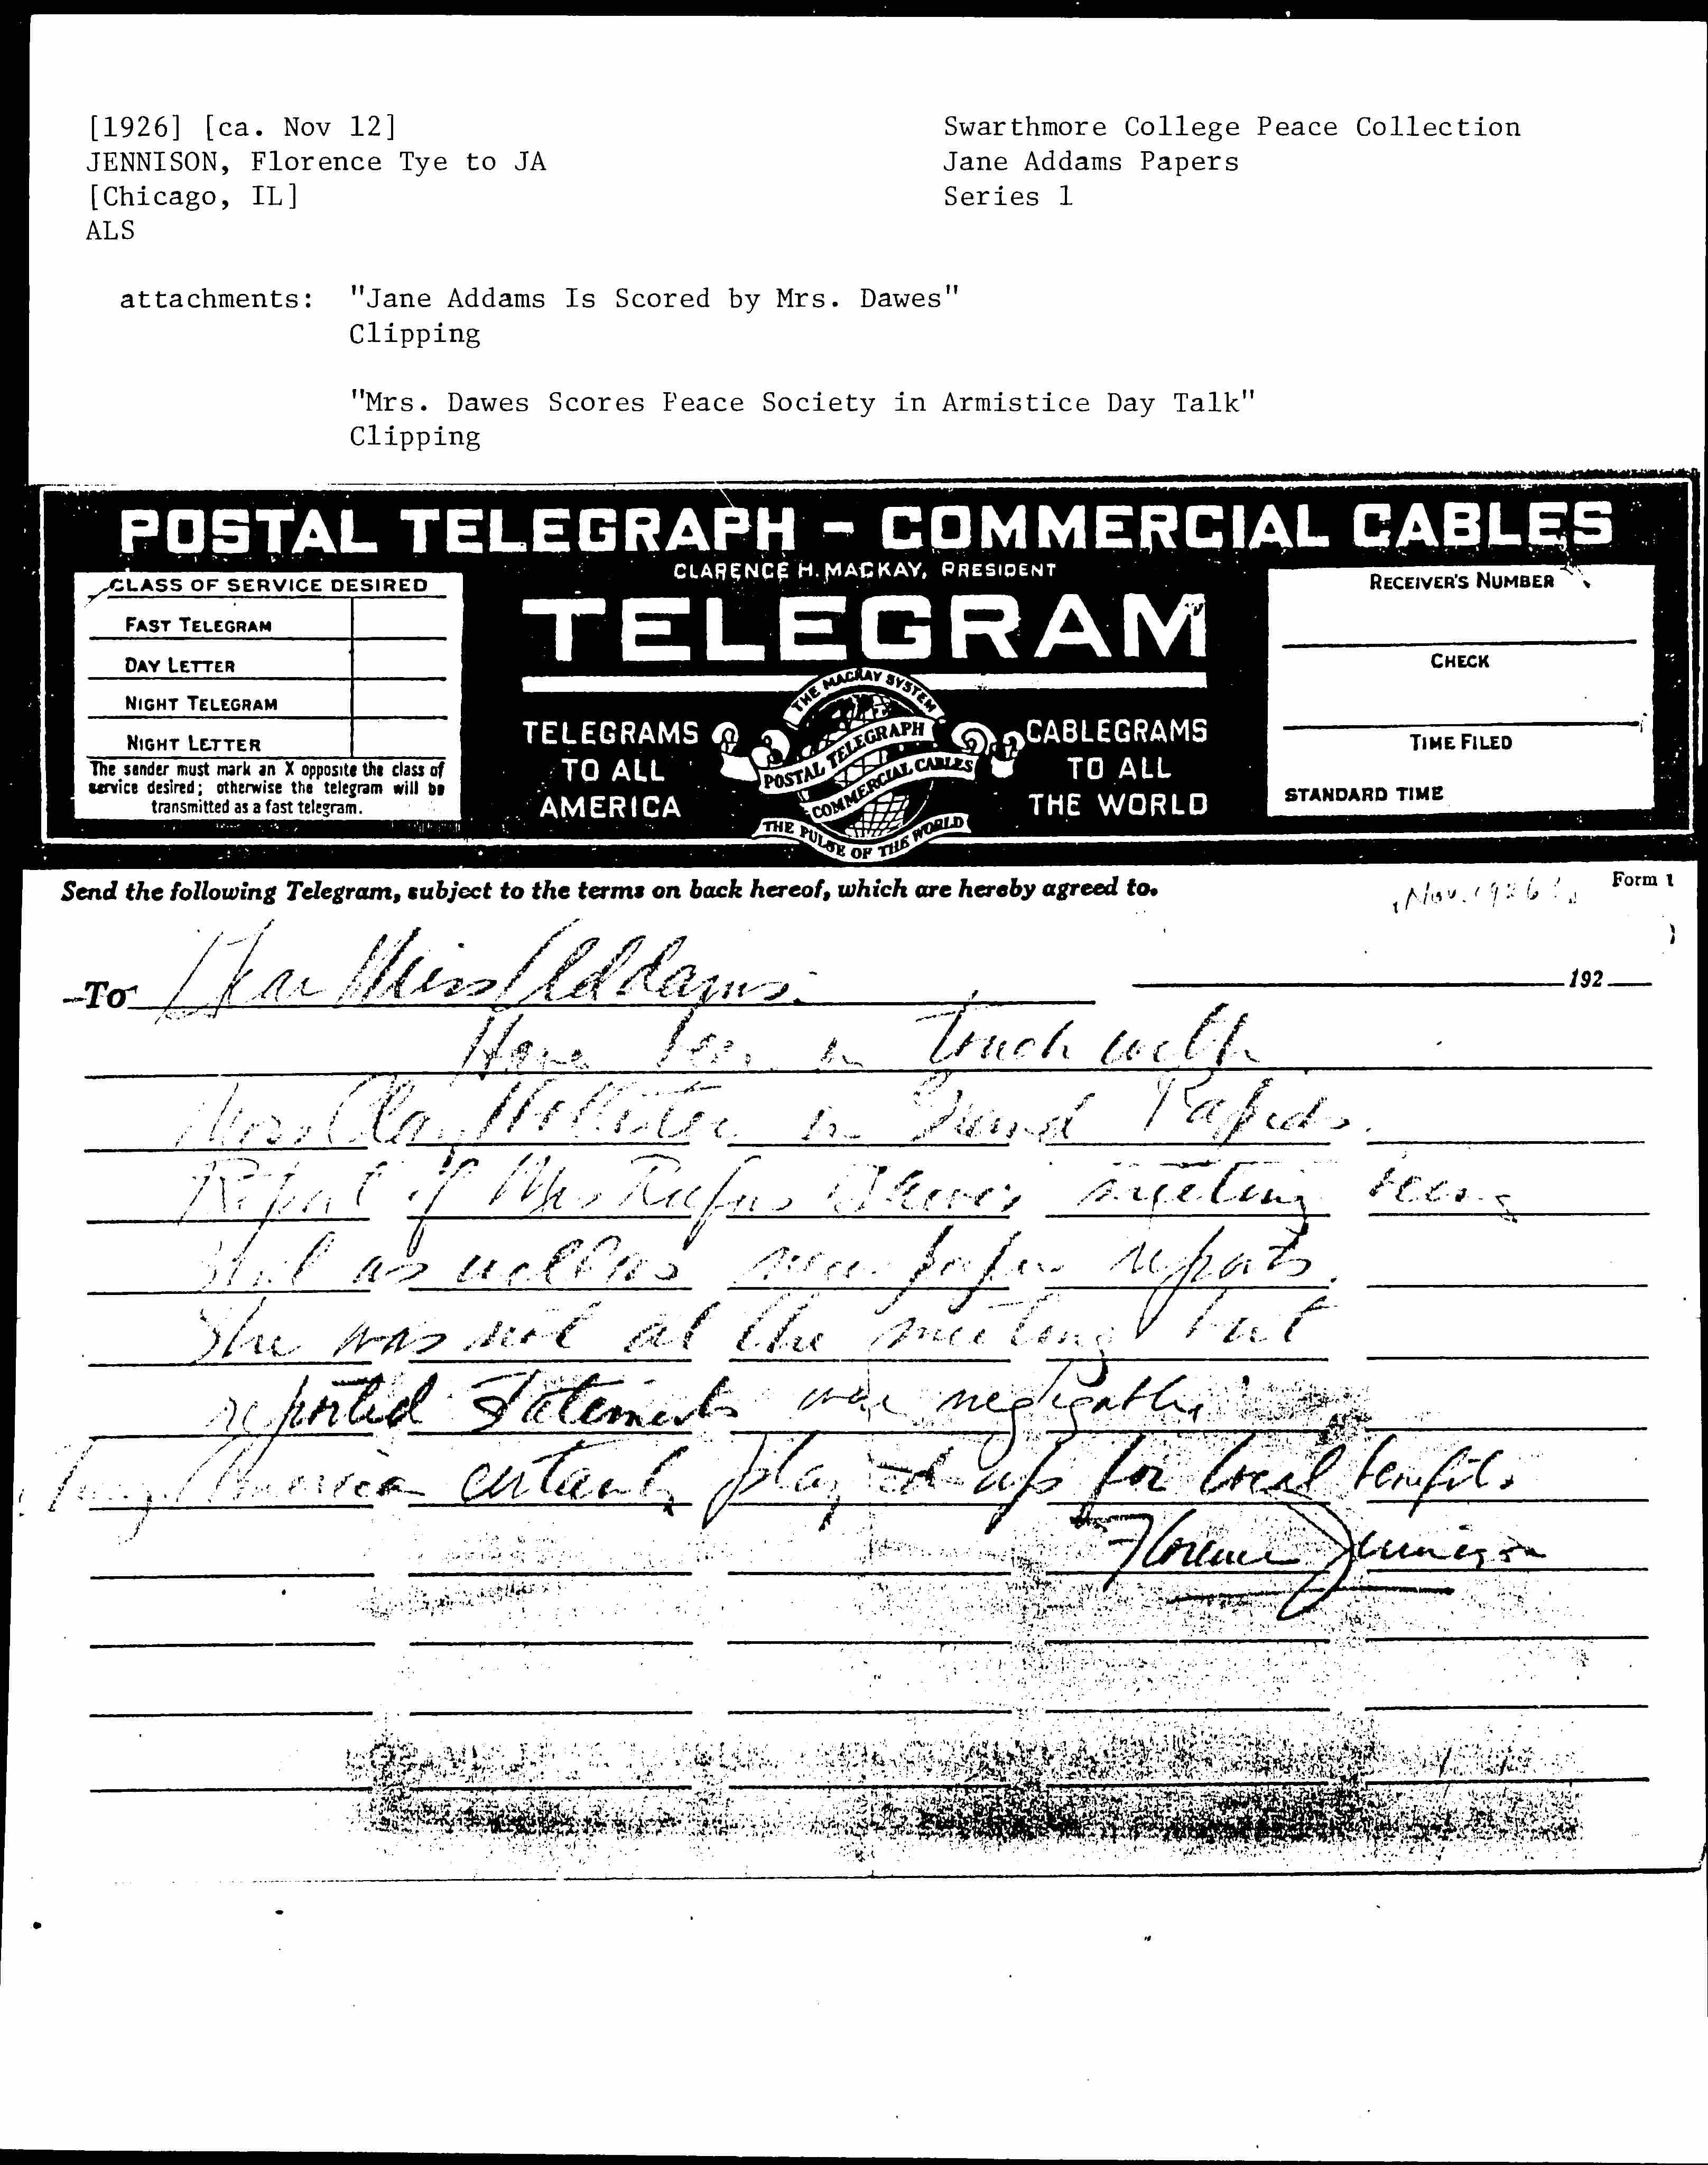 [1926] [ca. Nov 12]
JENNISON, Florence Tye to JA
[Chicago, IL]
ALS
Swarthmore College Peace Collection
Jane Addams Papers
Series 1
attachments: "Jane Addams Is Scored by Mrs. Dawes"
Clipping
"Mrs. Dawes Scores Peace Society in Armistice Day Talk"
Clipping
POSTAL TELEGRAPH - COMMERCIAL CABLES
CLARENCE H. MACKAY, PRESIDENT
CLASS OF SERVICE DESIRED
FAST TELEGRAM
DAY LETTER
NIGHT TELEGRAM
NIGHT LETTER
The sender must mark an X opposite the class of
service desired; otherwise the telegram will be
transmitted as a fast telegram.
TELEGRAM
TELEGRAMS
TO ALL
AMERICA
THE MACKAY SYSTEM
POSTAL TELEGRAPH
COMMERCIAL CABLES
THE PULSE OF THE WORLD
CABLEGRAMS
TO ALL
THE WORLD
RECEIVER'S NUMBER
CHECK
TIME FILED
STANDARD TIME
Send the following Telegram, subject to the terms on back hereof, which are hereby agreed to.
Nov. 1926?
Form 1
To Dear Miss Addams. 192
Have been in touch with
Mrs Clay Hollister in Grand Rapids.
Report of Mrs Rufus Dawes meeting being
sent as well as news paper reports.
She was not at the meeting but
reported statements were
America certainly played up for local benefit.
Florence Jennison